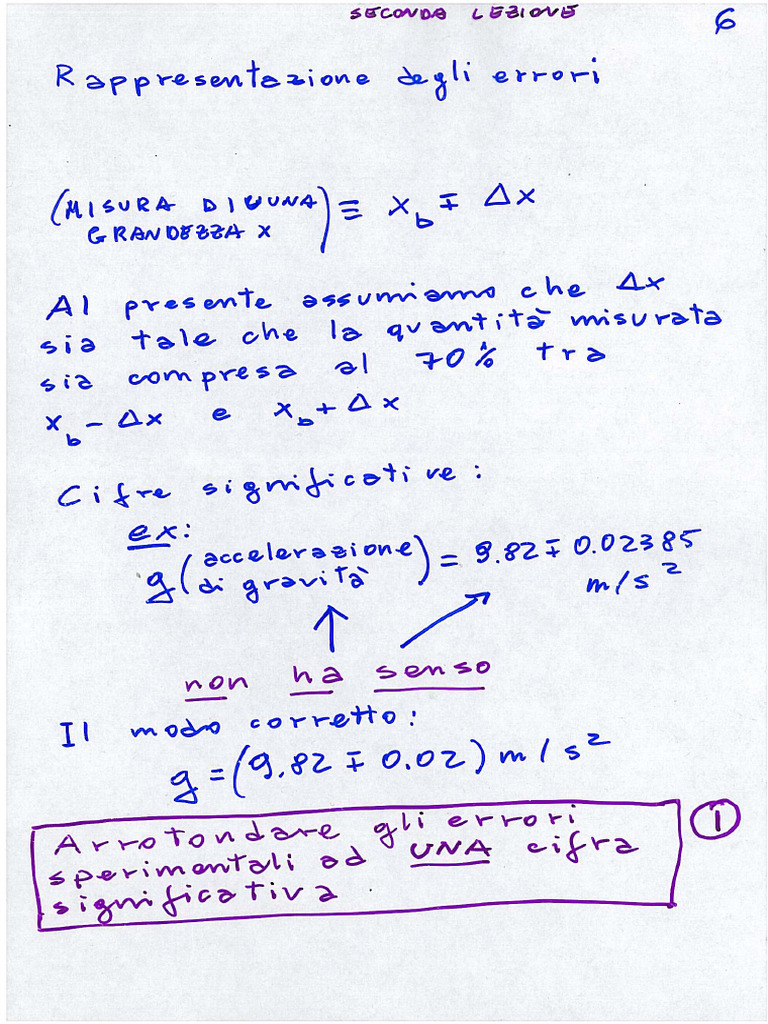 SECONDA LEZIONE
6
Rappresentazione degli errori
(MISURA DI UNA GRANDEZZA X) ≡ x_b ∓ Δx
Al presente assumiamo che Δx
sia tale che la quantità misurata
sia compresa al 70% tra
x_b - Δx e x_b + Δx
Cifre significative:
ex:
g (accelerazione di gravità) = 9.82 ∓ 0.02385
m/s²
non ha senso
Il modo corretto:
g = (9.82 ∓ 0.02) m/s²
Arrotondare gli errori
sperimentali ad UNA cifra
significativa
1